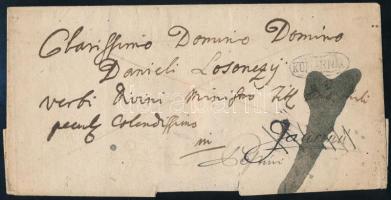 Clarissimo Domino Domino
Danieli Losonczy
KOMORN
verbi Divini Ministro Titt
peculr Colendissimo
in